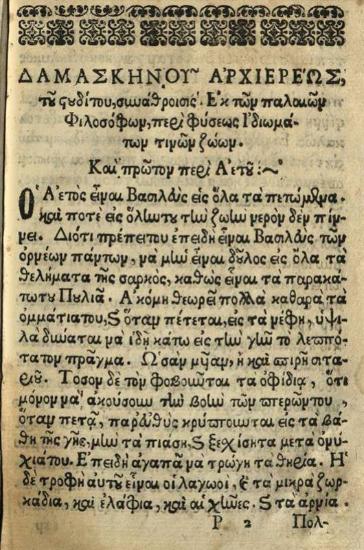 ΔΑΜΑΣΚΗΝΟΥ͂ ΑΡΧΙΕΡΕΩΣ,
τοῦ Στουδίτου, συνάθροισις. Ἐκ τῶν παλαιῶν
Φιλοσόφων, περὶ φύσεως Ἰδιωμά-
των τινῶν ζώων.
Καὶ πρῶτον περὶ Ἀετοῦ :~
Ὁ Ἀετὸς εἶναι Βασιλεὺς εἰς ὅλα τὰ πετώμενα.
καὶ ποτὲ εἰς ὅλην του τὴν ζωὴν νερὸν δὲν πίν-
νει. Διότι πρέπει του ἐπειδὴ εἶναι Βασιλεὺς τῶν
ὀρνέων πάντων, νὰ μὴν εἶναι δοῦλος εἰς ὅλα τὰ
θελήματα τῆς σαρκός, καθὼς εἶναι τὰ παρακά-
τω του Πουλιά. Ἀκόμη θεωρεῖ πολλὰ καθαρὰ τὰ
ὀμμάτιά του, καὶ ὅταν πέτεται, εἰς τὰ νέφη, ὑψη-
λὰ δύναται νὰ ἰδῇ κάτω εἰς τὴν γῆν τὸ λεπτό-
τατον πρᾶγμα. Ὡσὰν μύαν, ἢ καὶ σπυρὴ σιτα-
ρίου. Τόσον δὲ τὸν φοβοῦνται τὰ ὀφίδια, ὅτι
μόνον νὰ ἀκούσουν τὴν βοὴν τῶν πτερῶν του,
ὅταν πετᾷ, παρευθὺς κρύπτουνται εἰς τὰ βά-
θη τῆς γῆς, μὴν τὰ πιάσῃ, καὶ ξεχίσῃ τα μὲ τὰ ὀνύ-
χιά του. Ἐπειδὴ ἀγαπᾷ νὰ τρώγῃ τὰ θηρία. Ἡ
δὲ τροφὴ αὐτοῦ εἶναι οἱ λαγωοί, καὶ τὰ μικρὰ ζωρ-
κάδια, καὶ ἐλάφια, καὶ αἱ χῆνες, καὶ τὰ ἀρνία.
P 2 Πολ-